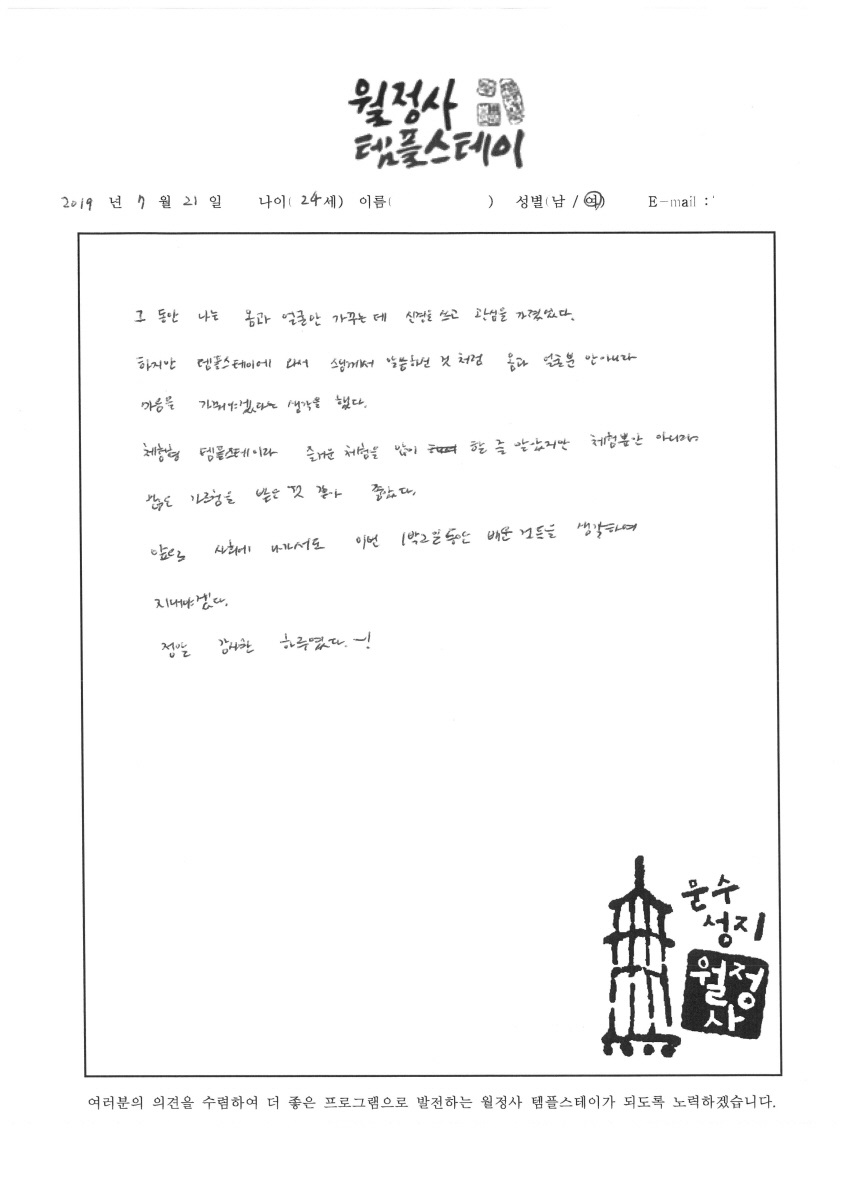 월정사
템플스테이
2019 년 7 월 21 일 나이( 24세) 이름( ) 성별(남 / 여) E-mail :
그 동안 나는 몸과 얼굴만 가꾸는 데 신경을 쓰고 관심을 가졌었다.
하지만 템플스테이에 와서 스님께서 말씀하신 것 처럼 몸과 얼굴뿐 만아니라
마음을 가꿔야겠다는 생각을 했다.
체험형 템플스테이라 즐거운 체험을 많이 할 줄 알았지만 체험뿐만 아니라
많은 가르침을 받은 것 같아 좋았다.
앞으로 사회에 나가서도 이번 1박2일동안 배운 것들을 생각하며
지내야겠다.
정말 감사한 하루였다. ~!
문수
성지
월정
사
여러분의 의견을 수렴하여 더 좋은 프로그램으로 발전하는 월정사 템플스테이가 되도록 노력하겠습니다.